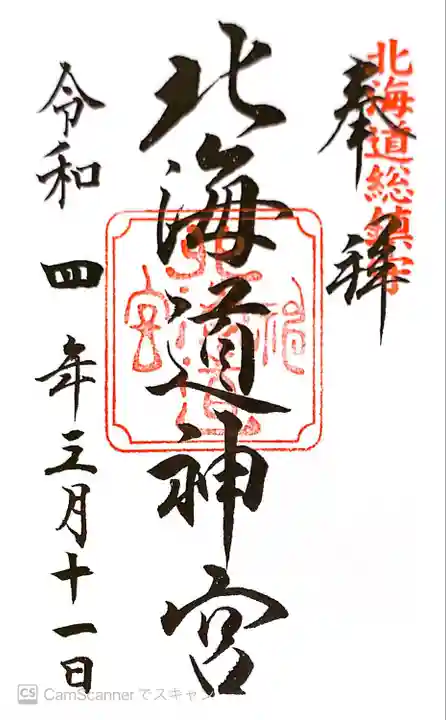 北海道総鎮守
奉拝
北海道神宮
北海道神宮
令和四年三月十一日
CS CamScannerでスキャン